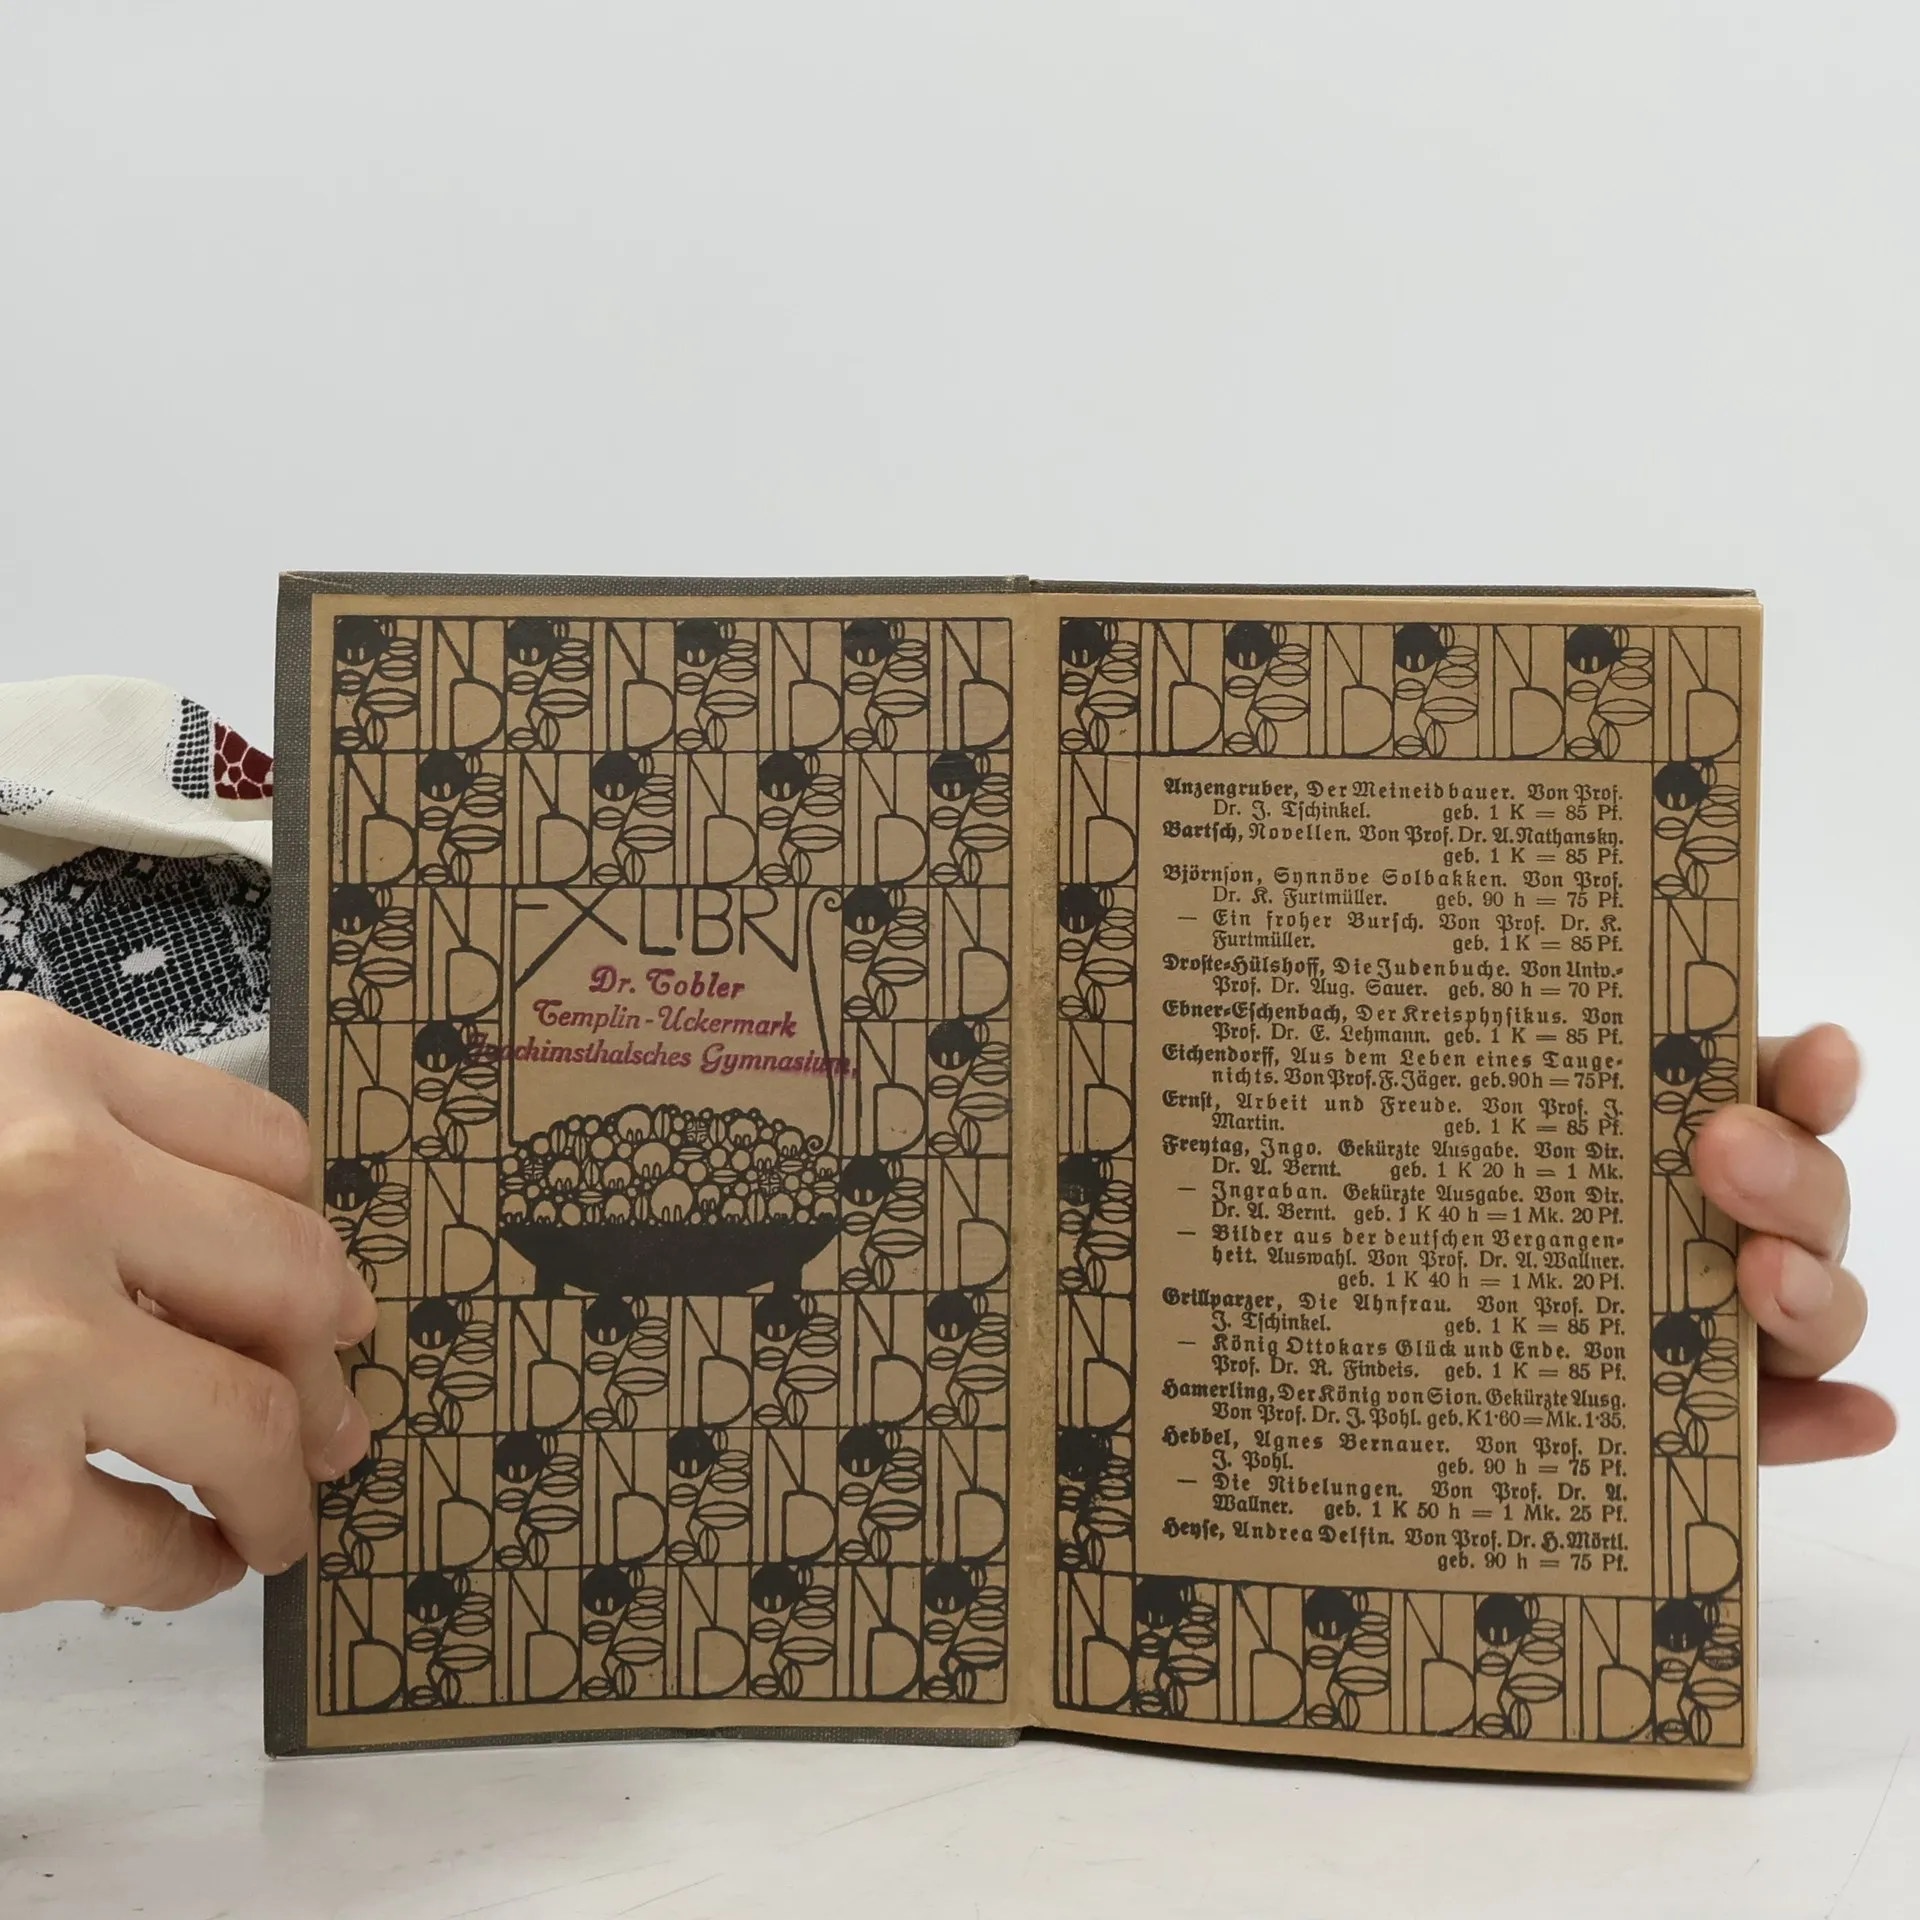 EX LIBRIS
Dr. Tobler
Templin-Uckermark
Joachimsthalsches Gymnasium,
Anzengruber, Der Meineidbauer. Von Prof.
Dr. J. Tschinkel. geb. 1 K = 85 Pf.
Bartsch, Novellen. Von Prof. Dr. A. Nathansky.
geb. 1 K = 85 Pf.
Björnson, Synnöve Solbakken. Von Prof.
Dr. K. Furtmüller. geb. 90 h = 75 Pf.
— Ein froher Bursch. Von Prof. Dr. K.
Furtmüller. geb. 1 K = 85 Pf.
Droste-Hülshoff, Die Judenbuche. Von Univ.-
Prof. Dr. Aug. Sauer. geb. 80 h = 70 Pf.
Ebner-Eschenbach, Der Kreisphysikus. Von
Prof. Dr. E. Lehmann. geb. 1 K = 85 Pf.
Eichendorff, Aus dem Leben eines Tauge-
nichts. Von Prof. F. Jäger. geb. 90 h = 75 Pf.
Ernst, Arbeit und Freude. Von Prof. J.
Martin. geb. 1 K = 85 Pf.
Freytag, Ingo. Gekürzte Ausgabe. Von Dir.
Dr. A. Bernt. geb. 1 K 20 h = 1 Mk.
— Ingraban. Gekürzte Ausgabe. Von Dir.
Dr. A. Bernt. geb. 1 K 40 h = 1 Mk. 20 Pf.
— Bilder aus der deutschen Vergangen-
heit. Auswahl. Von Prof. Dr. A. Wallner.
geb. 1 K 40 h = 1 Mk. 20 Pf.
Grillparzer, Die Ahnfrau. Von Prof. Dr.
J. Tschinkel. geb. 1 K = 85 Pf.
— König Ottokars Glück und Ende. Von
Prof. Dr. R. Findeis. geb. 1 K = 85 Pf.
Hamerling, Der König von Sion. Gekürzte Ausg.
Von Prof. Dr. J. Pohl. geb. K 1·60 = Mk. 1·35.
Hebbel, Agnes Bernauer. Von Prof. Dr.
J. Pohl. geb. 90 h = 75 Pf.
— Die Nibelungen. Von Prof. Dr. A.
Wallner. geb. 1 K 50 h = 1 Mk. 25 Pf.
Heyse, Andrea Delfin. Von Prof. Dr. H. Mörtl.
geb. 90 h = 75 Pf.